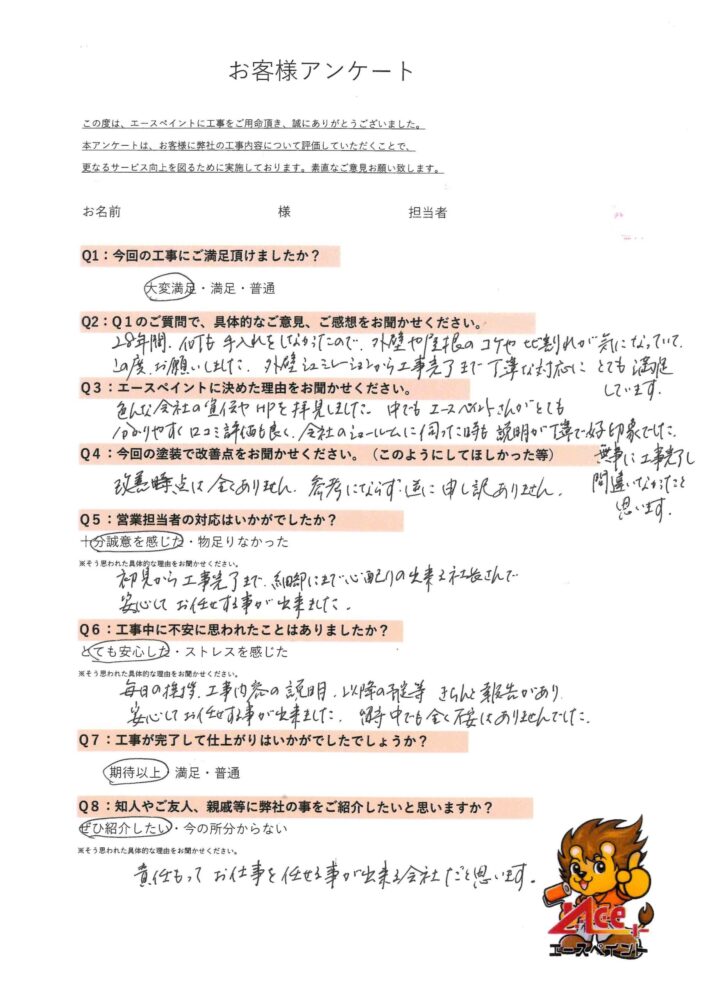 お客様アンケート
この度は、エースペイントに工事をご用命頂き、誠にありがとうございました。
本アンケートは、お客様に弊社の工事内容について評価していただくことで、
更なるサービス向上を図るために実施しております。素直なご意見お願い致します。
お名前 様 担当者
Q1：今回の工事にご満足頂けましたか？
大変満足・満足・普通
Q2：Q1のご質問で、具体的なご意見、ご感想をお聞かせください。
28年間、何も手入れをしなかったので、外壁や屋根のコケやひび割れが気になっていて、
この度、お願いしました。外壁シュミレーションから工事完了まで丁寧な対応にとても満足
しています。
Q3：エースペイントに決めた理由をお聞かせください。
色んな会社の宣伝やHPを拝見しました。中でもエースペイントさんがとても
分かりやすく口コミ評価も良く、会社のショールームに伺った時も説明が丁寧で好印象でした。
無事に工事完了し
間違いなかったと
思います。
Q4：今回の塗装で改善点をお聞かせください。（このようにしてほしかった等）
改善点は全くありません。参考にならず逆に申し訳ありません。
Q5：営業担当者の対応はいかがでしたか？
十分誠意を感じた・物足りなかった
※そう思われた具体的な理由をお聞かせください。
初見から工事完了まで、細部にまで心配りの出来る社長さんで
安心してお任せする事が出来ました。
Q6：工事中に不安に思われたことはありましたか？
とても安心した・ストレスを感じた
※そう思われた具体的な理由をお聞かせください。
毎日の挨拶、工事内容の説明、以降の予定等 きちんと報告があり、
安心してお任せする事が出来ました。留守中でも全く不安はありませんでした。
Q7：工事が完了して仕上がりはいかがでしたでしょうか？
期待以上・満足・普通
Q8：知人やご友人、親戚等に弊社の事をご紹介したいと思いますか？
ぜひ紹介したい・今の所分からない
※そう思われた具体的な理由をお聞かせください。
責任もってお仕事を任せる事が出来る会社だと思います。
Ace
エースペイント